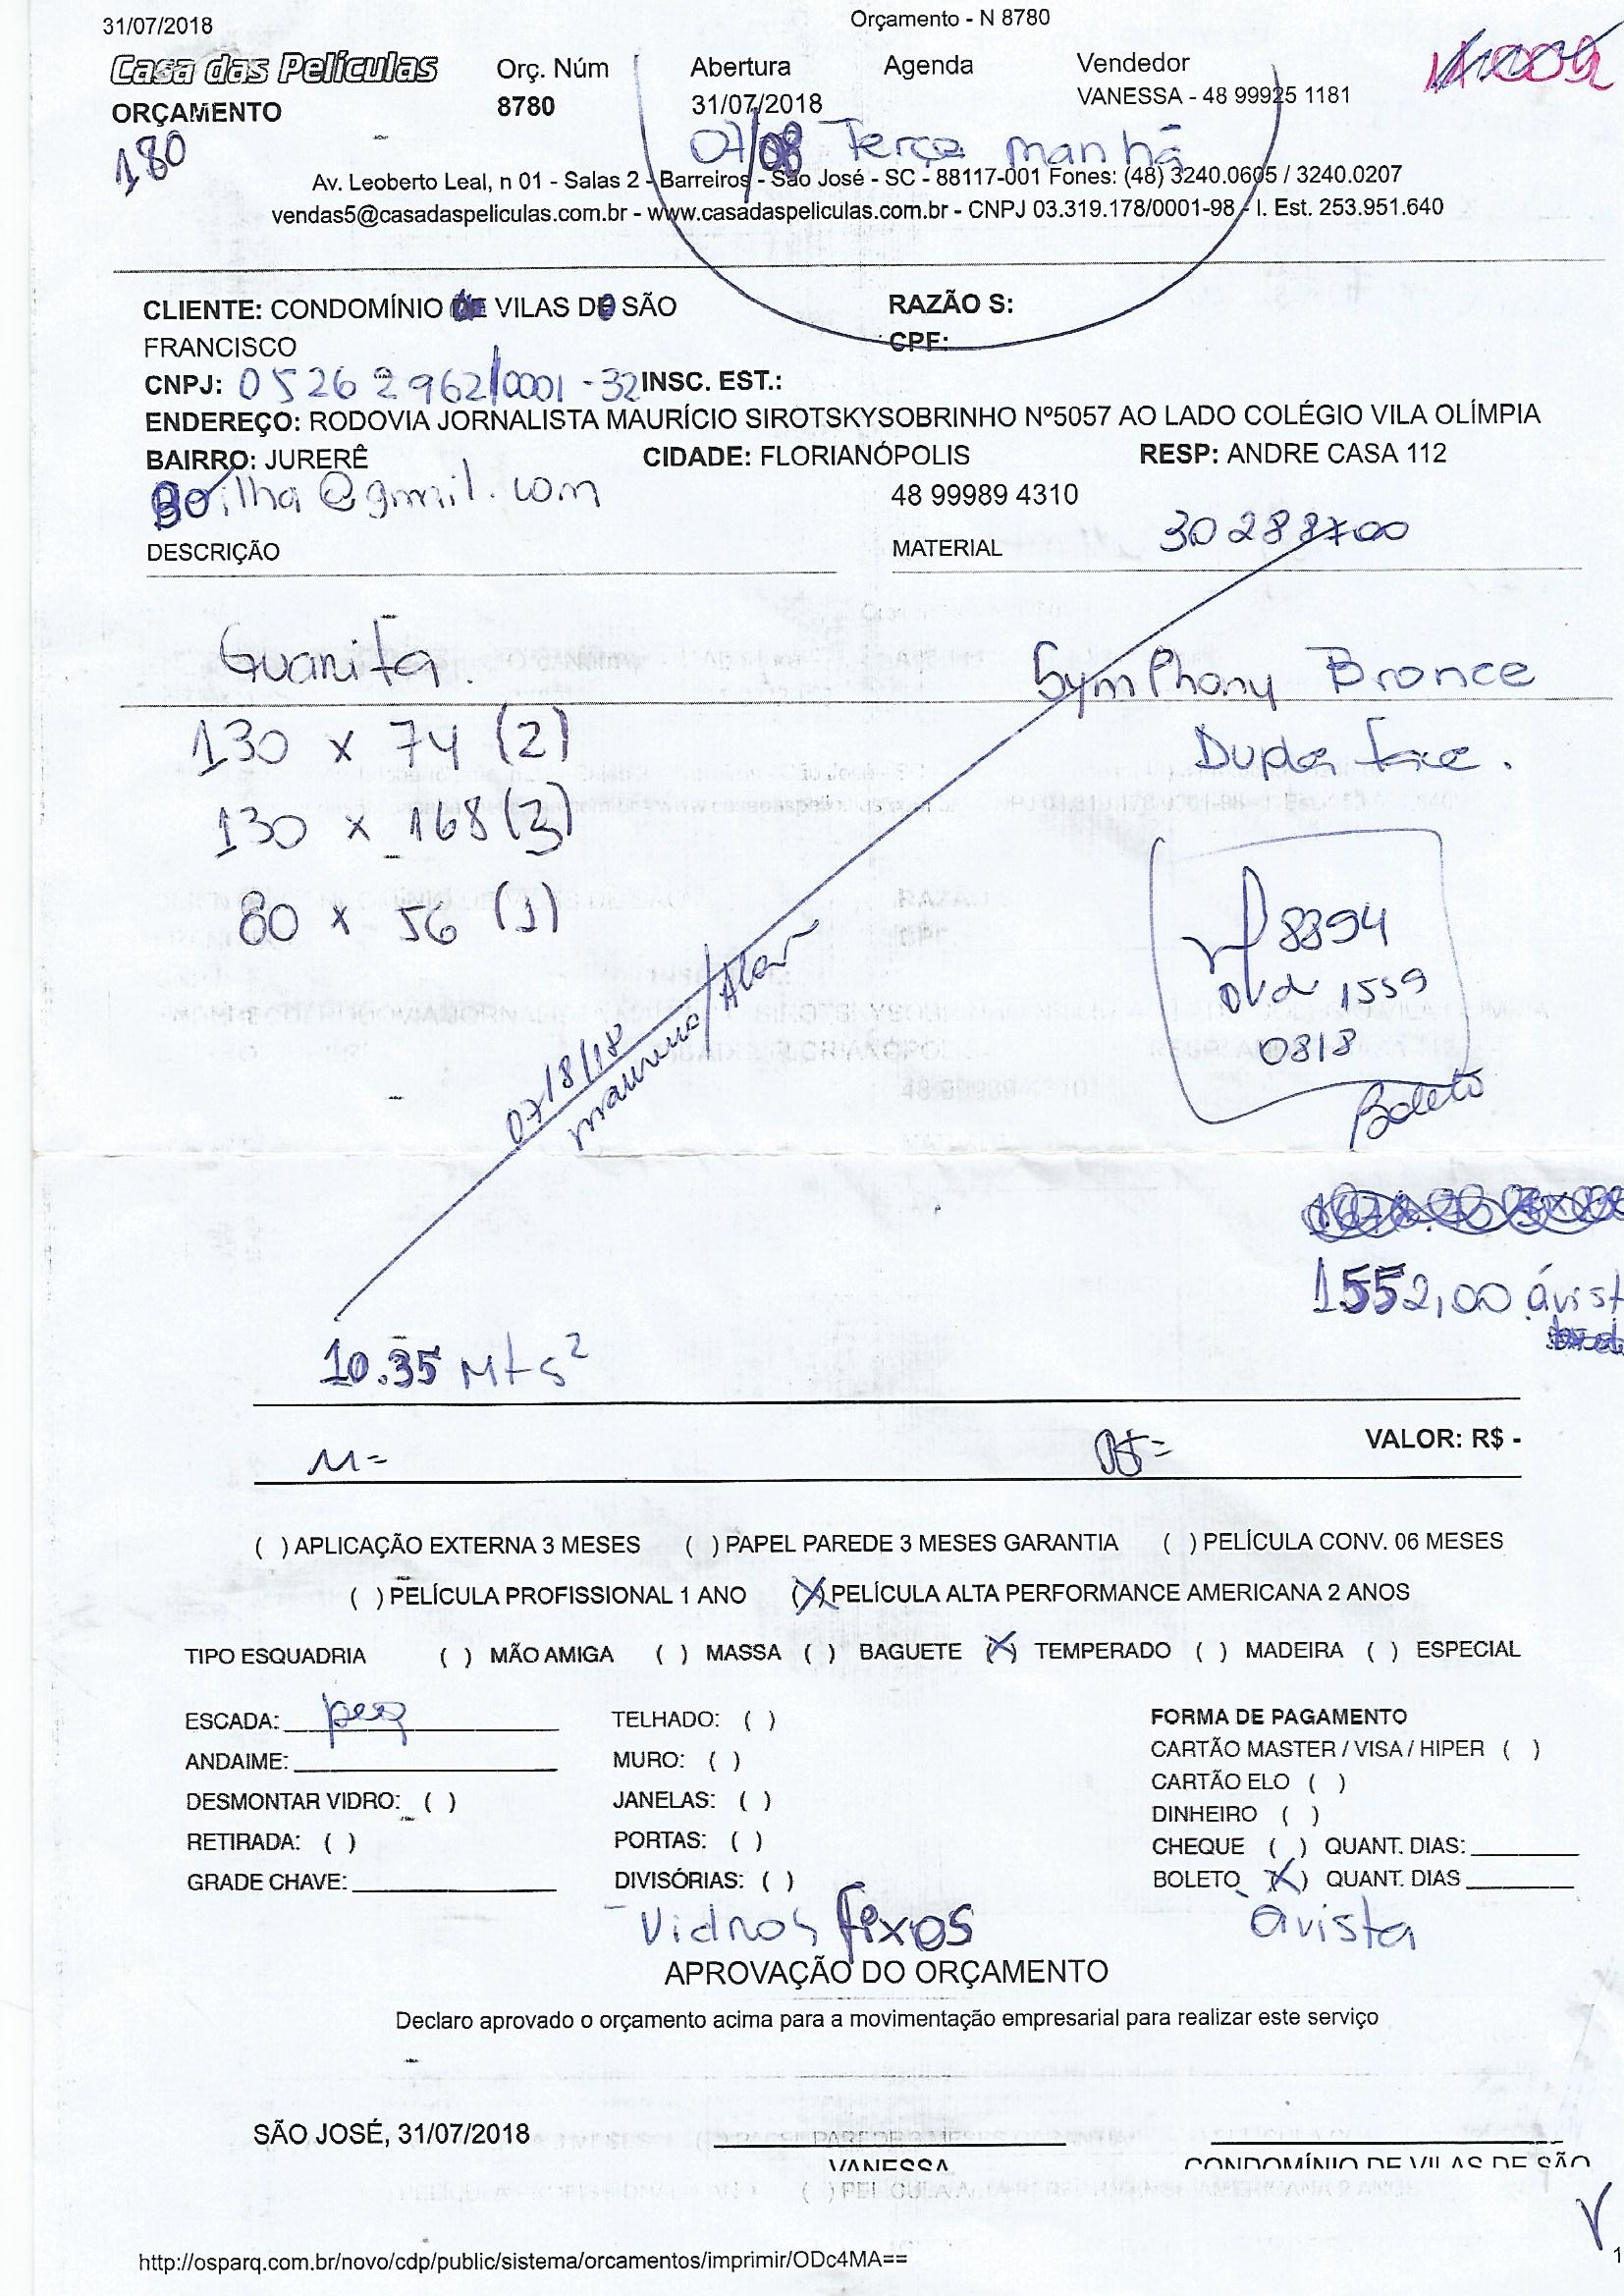 31/07/2018
Orçamento - N 8780
Casa das Películas
Orç. Núm
Abertura
Agenda
Vendedor
ORÇAMENTO
8780
31/07/2018
VANESSA - 48 99925 1181
180
07/08 Terça manhã
Av. Leoberto Leal, n 01 - Salas 2 - Barreiros - São José - SC - 88117-001 Fones: (48) 3240.0605 / 3240.0207
vendas5@casadaspeliculas.com.br - www.casadaspeliculas.com.br - CNPJ 03.319.178/0001-98 - I. Est. 253.951.640
CLIENTE: CONDOMÍNIO VILAS DE SÃO
RAZÃO S:
FRANCISCO
CPF:
CNPJ: 05262962/0001-32 INSC. EST.:
ENDEREÇO: RODOVIA JORNALISTA MAURÍCIO SIROTSKYSOBRINHO Nº5057 AO LADO COLÉGIO VILA OLÍMPIA
BAIRRO: JURERÊ
CIDADE: FLORIANÓPOLIS
RESP: ANDRE CASA 112
48 99989 4310
DESCRIÇÃO
MATERIAL
30288700
Guarita.
SymPhony Bronce
130 x 74 (2)
Dupla face.
130 x 168 (3)
80 x 56 (1)
nf 8394
1559
0818
Boleto
07/8/18
1552,00 ávist
10.35 Mts²
M=
VALOR: R$ -
( ) APLICAÇÃO EXTERNA 3 MESES ( ) PAPEL PAREDE 3 MESES GARANTIA ( ) PELÍCULA CONV. 06 MESES
( ) PELÍCULA PROFISSIONAL 1 ANO (X) PELÍCULA ALTA PERFORMANCE AMERICANA 2 ANOS
TIPO ESQUADRIA ( ) MÃO AMIGA ( ) MASSA ( ) BAGUETE (X) TEMPERADO ( ) MADEIRA ( ) ESPECIAL
ESCADA: peq
TELHADO: ( )
FORMA DE PAGAMENTO
ANDAIME:
MURO: ( )
CARTÃO MASTER / VISA / HIPER ( )
CARTÃO ELO ( )
DESMONTAR VIDRO: ( )
JANELAS: ( )
DINHEIRO ( )
RETIRADA: ( )
PORTAS: ( )
CHEQUE ( ) QUANT. DIAS:
GRADE CHAVE:
DIVISÓRIAS: ( )
BOLETO (X) QUANT. DIAS
Vidros fixos
ávista
APROVAÇÃO DO ORÇAMENTO
Declaro aprovado o orçamento acima para a movimentação empresarial para realizar este serviço
SÃO JOSÉ, 31/07/2018
VANESSA
CONDOMÍNIO DE VILAS DE SÃO
http://osparq.com.br/novo/cdp/public/sistema/orcamentos/imprimir/ODc4MA==
1